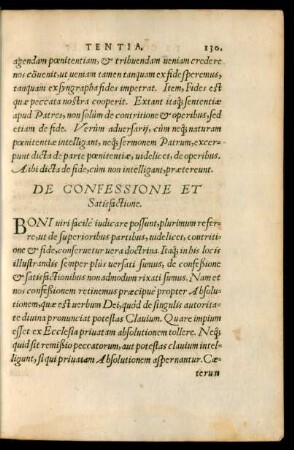 TENTIA. 130.
agendam pœnitentiam, & tribuendam ueniam credere
nos cōuenit, ut ueniam tamen tanquam ex fide speremus,
tanquam ex syngrapha fides impetrat. Item, Fides est
quæ peccata nostra cooperit. Extant itaq; sententiæ
apud Patres, non solùm de contritione & operibus, sed
etiam de fide. Verùm aduersarij, cùm neq; naturam
pœnitentiæ intelligant, neq; sermonem Patrum, excer-
punt dicta de parte pœnitentiæ, uidelicet, de operibus.
Alibi dicta de fide, cùm non intelligant, prætereunt.
DE CONFESSIONE ET
Satisfactione.
BONI uiri facilè iudicare possunt, plurimum refer-
re, ut de superioribus partibus, uidelicet, contritio
ne & fide, conseruetur uera doctrina. Itaq; in his locis
illustrandis semper plus uersati sumus, de confeßione
& satisfactionibus non admodum rixati sumus. Nam et
nos confeßionem retinemus præcipuè propter Absolu-
tionem, quæ est uerbum Dei, quòd de singulis autorita-
te diuina pronunciat potestas Clauium. Quare impium
esset ex Ecclesia priuatam absolutionem tollere. Neq;
quid sit remißio peccatorum, aut potestas clauium intel-
ligunt, si qui priuatam Absolutionem aspernantur. Cæ-
terum